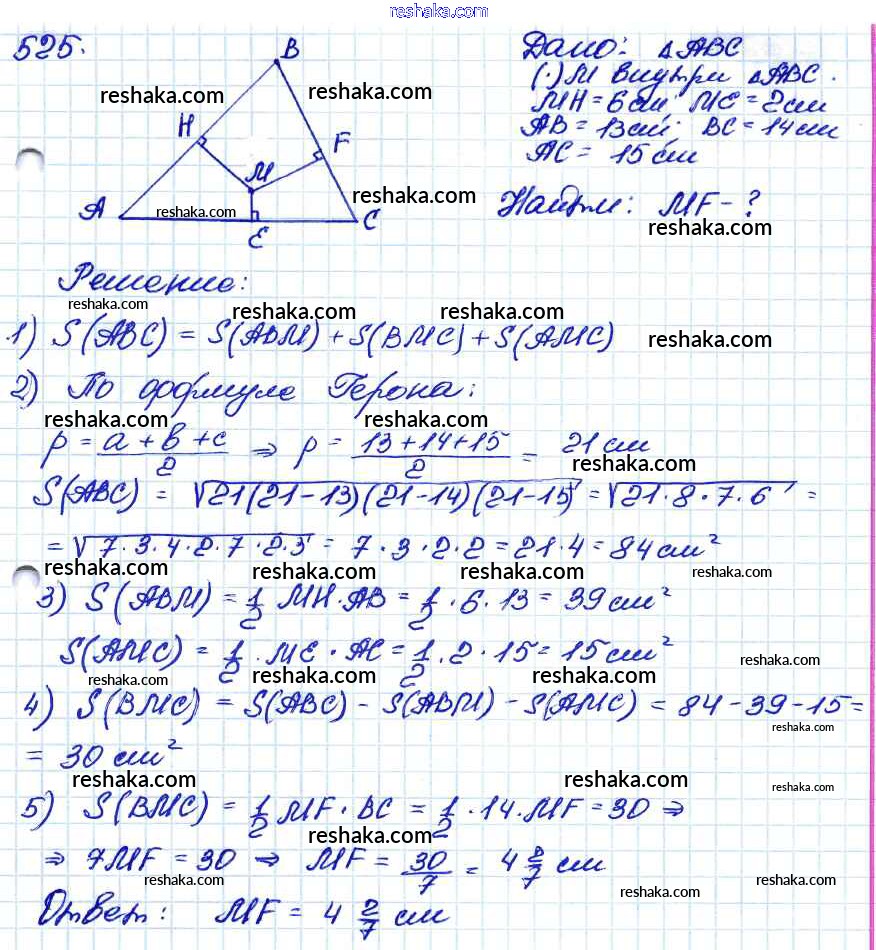 reshaka.com
525.
B
H
F
M
A
E
C
Дано: △ABC
(·)M внутри △ABC.
MH = 6 см; ME = 2 см
AB = 13 см; BC = 14 см
AC = 15 см
Найти: MF - ?
reshaka.com reshaka.com
reshaka.com reshaka.com
reshaka.com
Решение:
reshaka.com reshaka.com reshaka.com
1) S(ABC) = S(ABM) + S(BMC) + S(AMC) reshaka.com
2) По формуле Герона:
reshaka.com reshaka.com reshaka.com
p = \frac{a + b + c}{2} ⇒ p = \frac{13 + 14 + 15}{2} = 21 см
reshaka.com
S(ABC) = √21(21-13)(21-14)(21-15) = √21·8·7·6 =
= √7·3·4·2·7·2·3 = 7·3·2·2 = 21·4 = 84 см²
reshaka.com reshaka.com reshaka.com reshaka.com
3) S(ABM) = \frac{1}{2} MH·AB = \frac{1}{2}·6·13 = 39 см²
S(AMC) = \frac{1}{2}·ME·AC = \frac{1}{2}·2·15 = 15 см²
reshaka.com
reshaka.com reshaka.com reshaka.com
4) S(BMC) = S(ABC) - S(ABM) - S(AMC) = 84 - 39 - 15 =
reshaka.com
= 30 см²
reshaka.com reshaka.com reshaka.com
5) S(BMC) = \frac{1}{2} MF·BC = \frac{1}{2}·14·MF = 30 ⇒
reshaka.com
⇒ 7MF = 30 ⇒ MF = \frac{30}{7} = 4 \frac{2}{7} см
reshaka.com reshaka.com reshaka.com reshaka.com
Ответ: MF = 4 \frac{2}{7} см